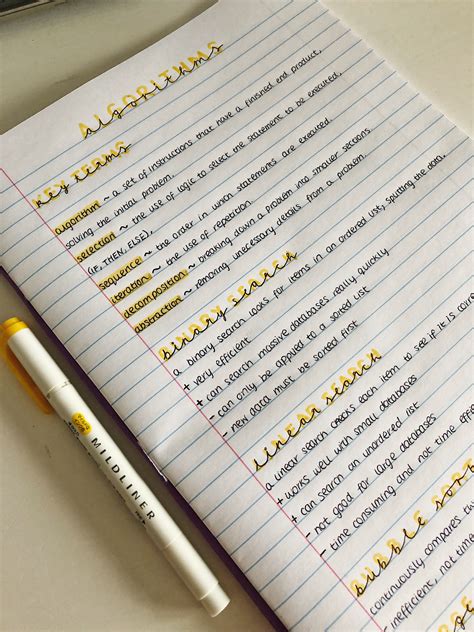 ALGORITHMS
algorithms
KEY TERMS
key terms
algorithm ~ a set of instructions that have a finished end product,
solving the initial problem.
selection ~ the use of logic to select the statement to be executed,
(IF, THEN, ELSE).
sequence ~ the order in which statements are executed.
iteration ~ the use of repetition.
decomposition ~ breaking down a problem into smaller sections.
abstraction ~ removing unnecessary details from a problem.
BINARY SEARCH
binary search
a binary search looks for items in an ordered list, splitting the data.
+ very efficient
+ can search massive databases really quickly
- can only be applied to a sorted list
- new data must be sorted first
LINEAR SEARCH
linear search
a linear search checks each item to see if it is
+ works well with small databases
+ can search an unordered list
- not good for large databases
- time consuming and not time
BUBBLE
bubble
continuously compares
- inefficient, not
MILDLINER